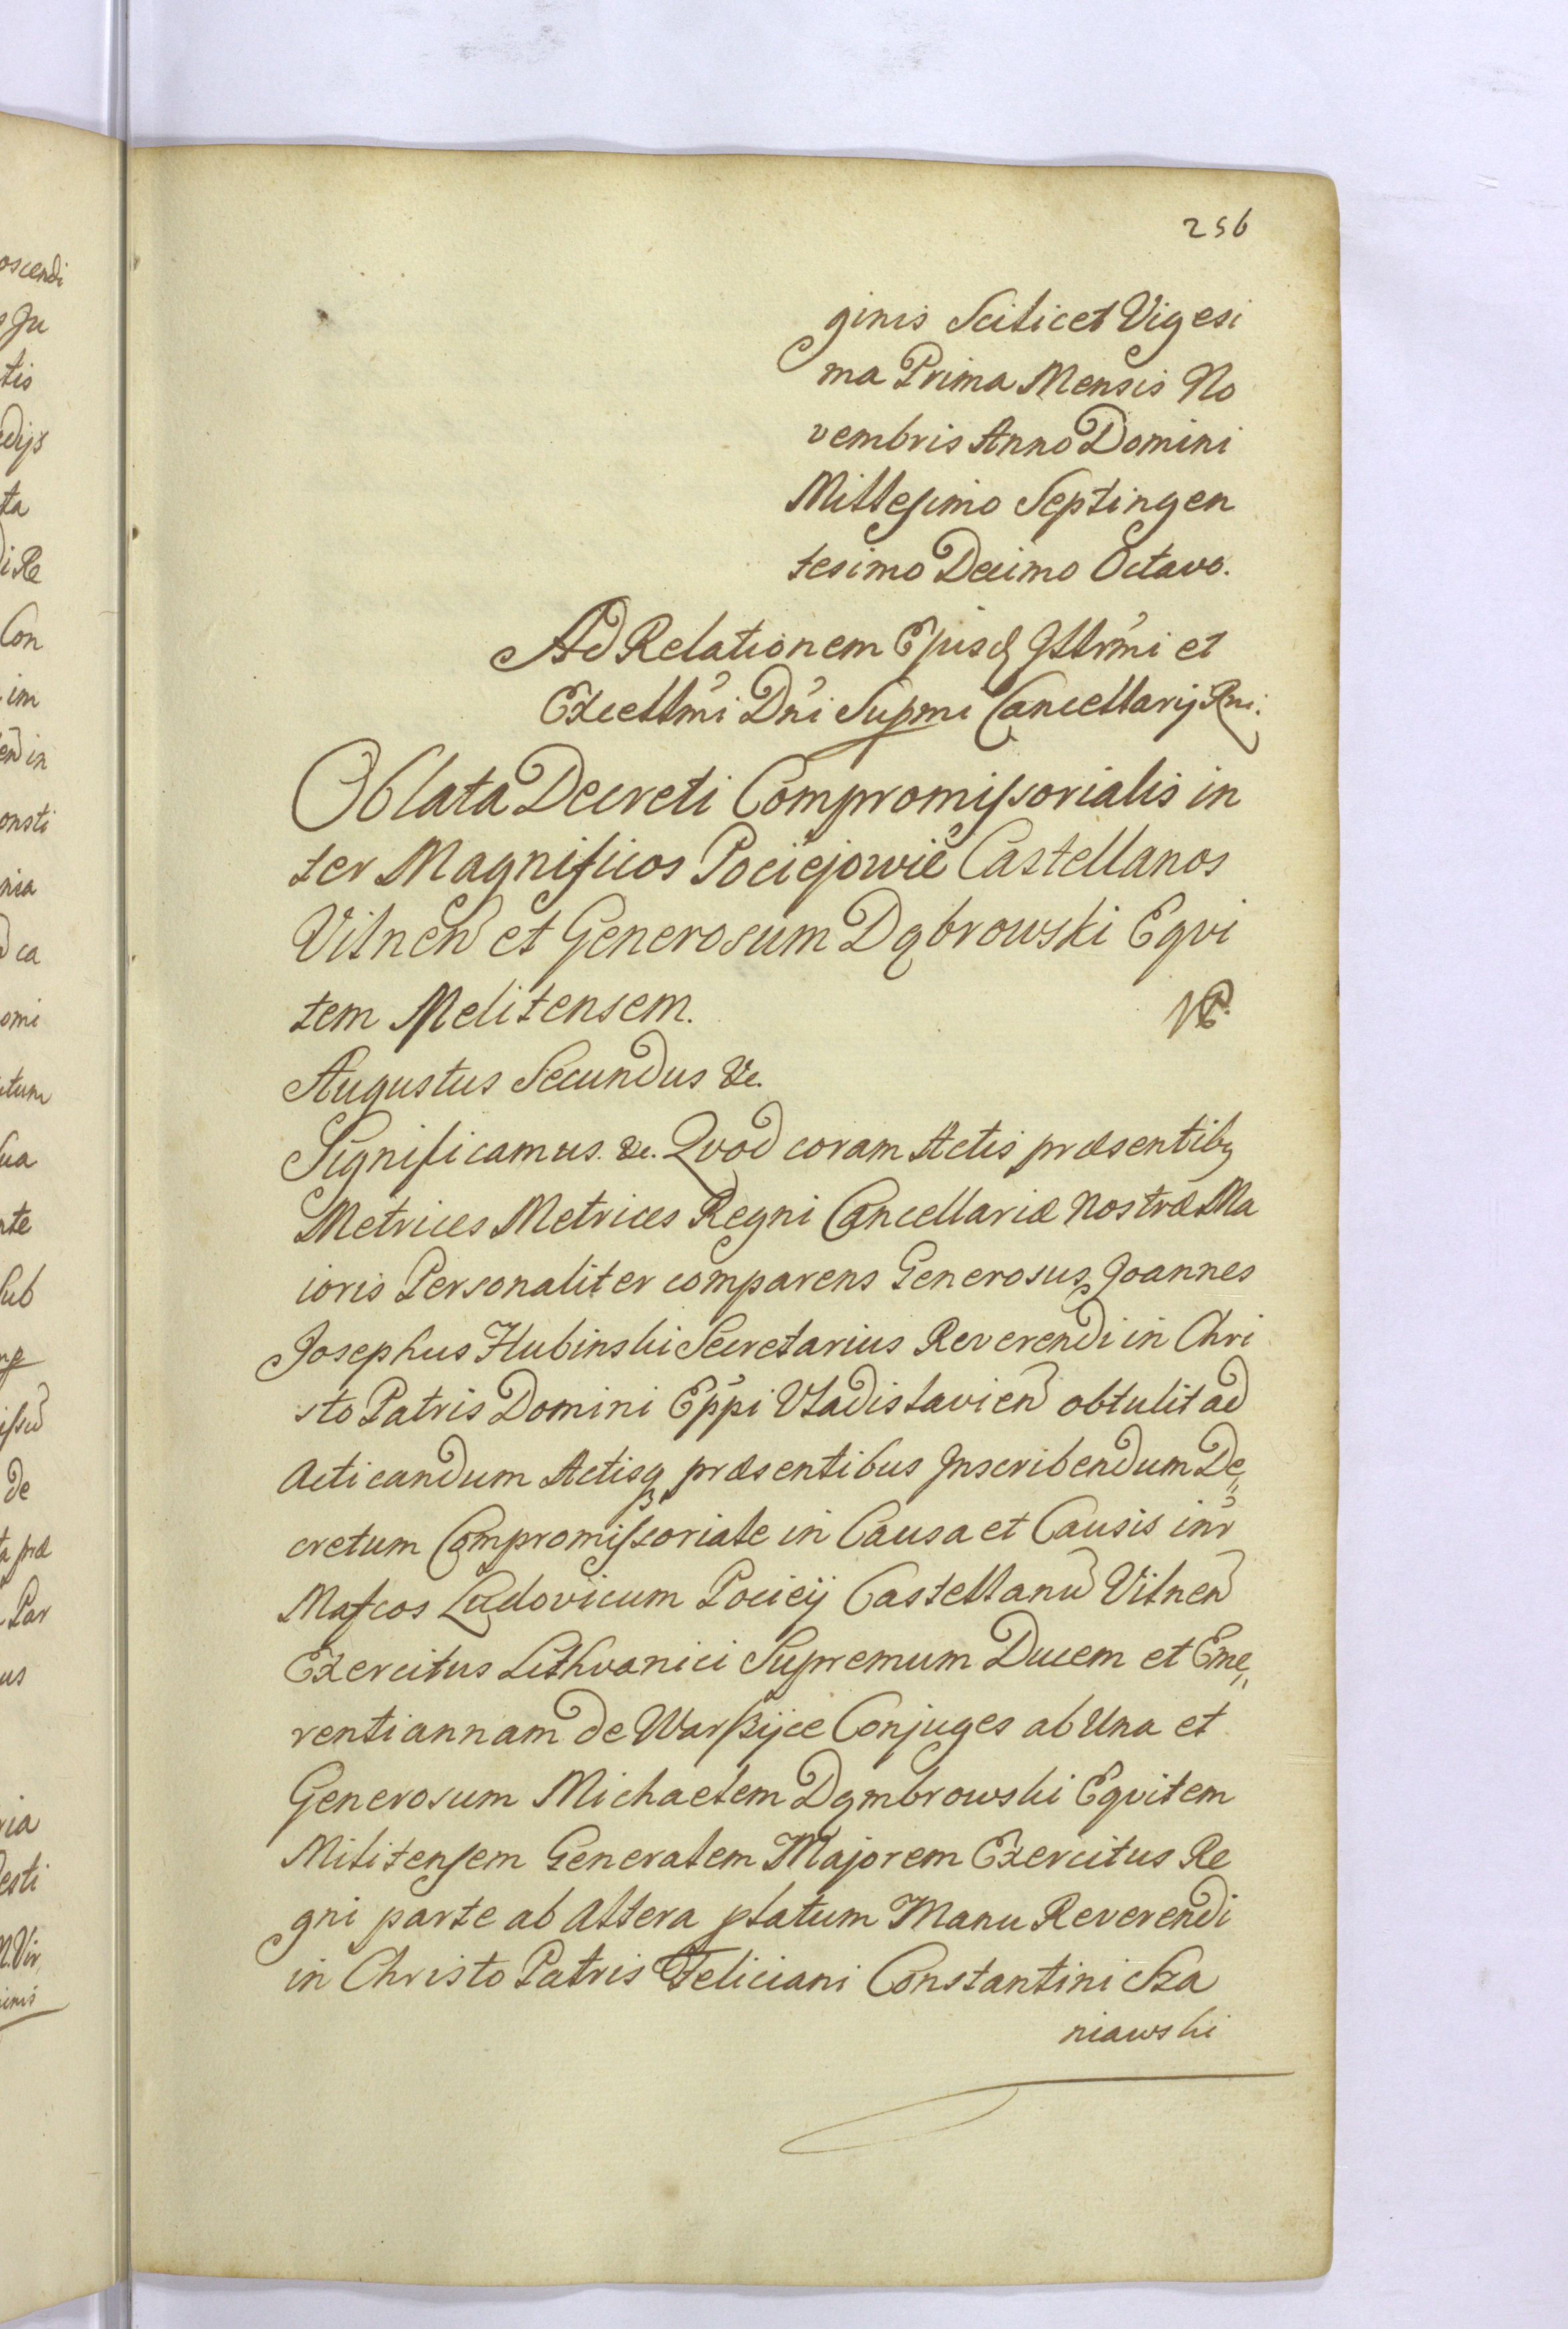 256
ginis Scilicet Vigesi
ma Prima Mensis No
vembris Anno Domini
Millesimo Septingen
tesimo Decimo Octavo.
Ad Relationem Ejusd Illrmi et
Excellmi Dni Supmi Cancellarij Rni.
Oblata Decreti Compromissorialis in
ter Magnificos Pociejowie Castellanos
Vilnen et Generosum Dąbrowski Eqvi
tem Melitensem.
Augustus Secundus &c.
Significamus &c. Qvod coram Actis præsentibq
Metrices Metrices Regni Cancellariæ Nostræ Ma
ioris Personaliter comparens Generosus Joannes
Josephus Hubinski Secretarius Reverendi in Chri
sto Patris Domini Eppi Vladislavien obtulit ad
Acticandum Actisq præsentibus Inscribendum De„
cretum Compromissoriale in Causa et Causis inr
Mafcos Ludovicum Pociey Castellanu Vilnen
Exercitus Lithvanici Supremum Ducem et Eme„
rentiannam de Warszyce Conjuges ab Una et
Generosum Michaelem Dąmbrowski Eqvitem
Militensem Generalem Majorem Exercitus Re
gni parte ab Altera platum Manu Reverendi
in Christo Patris Feliciani Constantini Sza
niawski
oscendi
Ju
tis
edijs
ta
di Re
Con
im
en in
onsti
nia
d ca
omi
utum
sua
nte
sub
de
ta præ
Par
us
ria
esti